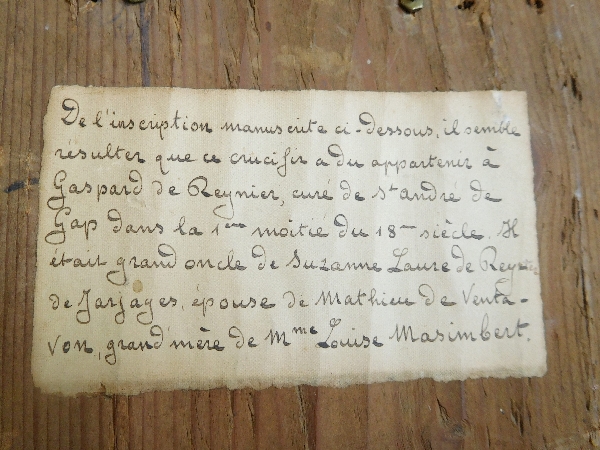 De l'inscription manuscrite ci-dessous, il semble
résulter que ce crucifix a du appartenir à
Gaspard de Reynier, curé de St André de
Gap dans la 1ere moitié du 18me siècle. Il
était grand oncle de Suzanne Laure de
de Jarjages, épouse de Mathieu de Venta-
von, grand'mère de Mme Louise Masimbert.